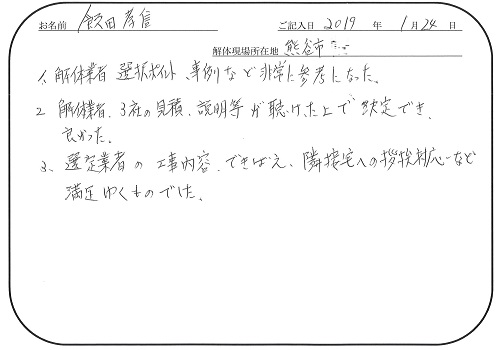 お名前 飯田孝信 ご記入日 2019 年 1月 24 日
解体現場所在地 熊谷市
1、解体業者 選択ポイント、事例など非常に参考になった。
2 解体業者、3社の見積、説明等が聴けた上で決定でき、
良かった。
3、選定業者の工事内容、できばえ、隣接宅への挨拶対応など
満足ゆくものでした。